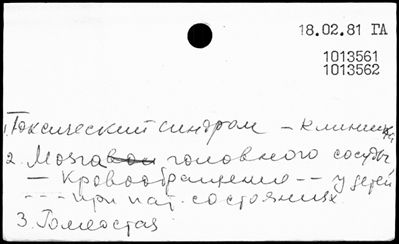 18.02.81 ГА
1013561
1013562
1. Токсический синдром – клиника
2. Мозга головного сосуды
– Кровообращение -- у детей
- - - при пат. состояниях
3. Гомеостаз